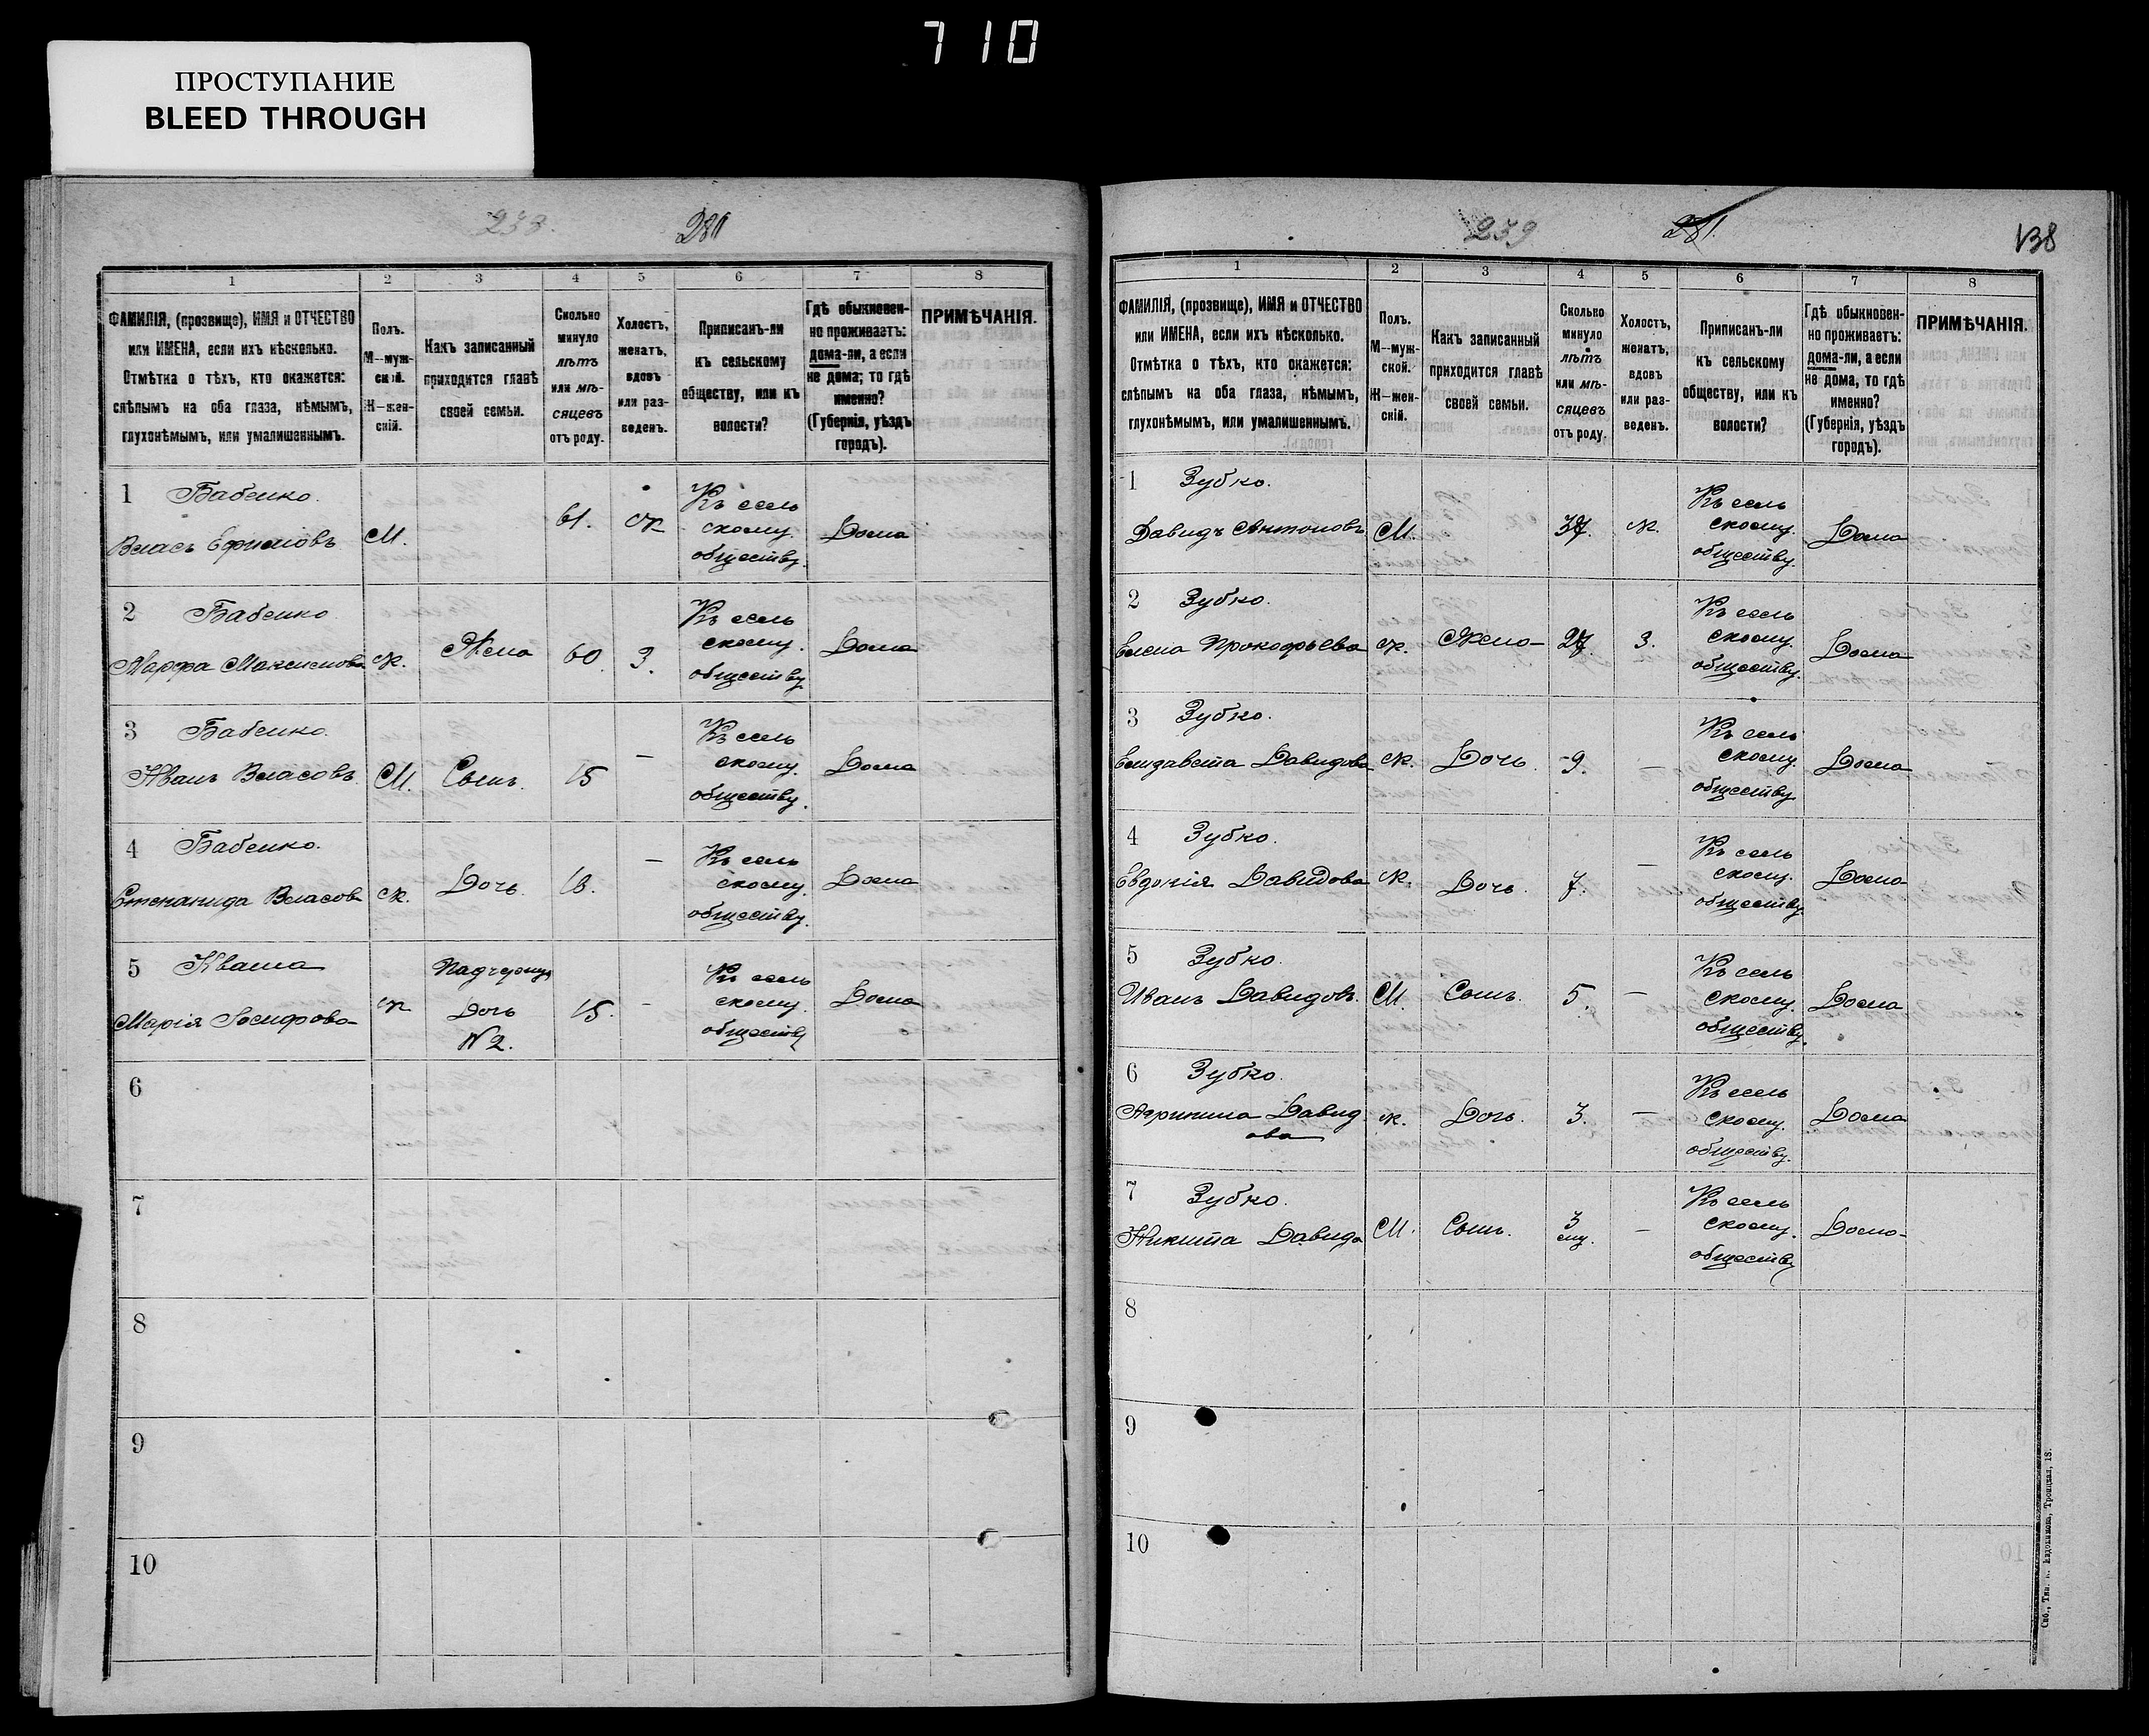 710
ПРОСТУПАНИЕ
BLEED THROUGH
233.
280
1 2 3 4 5 6 7 8
ФАМИЛІЯ, (прозвище), ИМЯ и ОТЧЕСТВО
или ИМЕНА, если ихъ нѣсколько.
Отмѣтка о тѣхъ, кто окажется:
слѣпымъ на оба глаза, нѣмымъ,
глухонѣмымъ, или умалишеннымъ.
Полъ.
М--муж-
ской.
Ж—жен-
скій.
Какъ записанный
приходится главѣ
своей семьи.
Сколько
минуло
лѣтъ
или мѣ-
сяцевъ
отъ роду.
Холостъ,
женатъ,
вдовъ
или раз-
веденъ.
Приписанъ-ли
къ сельскому
обществу, или къ
волости?
Гдѣ обыкновен-
но проживаетъ:
дома-ли, а если
не дома; то гдѣ
именно?
(Губернія, уѣздъ
городъ).
ПРИМѢЧАНІЯ.
1 Бабенко.
Власъ Ефимовъ М. 61. ж Къ сель
скому
обществу. Дома
2 Бабенко
Марфа Максимова ж. Жена 60. З. Къ сель
скому.
обществу Дома
3 Бабенко.
Иванъ Власовъ М. Сынъ. 15 — Къ сель
скому.
обществу. Дома
4 Бабенко.
Степанида Власов ж. Дочь. 18. — Къ сель
скому.
обществу. Дома
5 Кваша
Марія Іосифова ж Падчерица
Дочь
N 2. 15. - Къ сель
скому.
обществу Дома
6
7
8
9
10
239
281.
138
1 2 3 4 5 6 7 8
ФАМИЛІЯ, (прозвище), ИМЯ и ОТЧЕСТВО
или ИМЕНА, если ихъ нѣсколько.
Отмѣтка о тѣхъ, кто окажется:
слѣпымъ на оба глаза, нѣмымъ,
глухонѣмымъ, или умалишеннымъ.
Полъ.
М--муж-
ской.
Ж—жен-
скій.
Какъ записанный
приходится главѣ
своей семьи.
Сколько
минуло
лѣтъ
или мѣ-
сяцевъ
отъ роду.
Холостъ,
женатъ,
вдовъ
или раз-
веденъ.
Приписанъ-ли
къ сельскому
обществу, или къ
волости?
Гдѣ обыкновен-
но проживаетъ:
дома-ли, а если
не дома, то гдѣ
именно?
(Губернія, уѣздъ
городъ).
ПРИМѢЧАНІЯ.
1 Зубко.
Давидъ Антоновъ М. 37. ж. Къ сель
скому.
обществу. Дома
2 Зубко.
Елена Прокофьева ж. Жена 27 З. Къ сель
скому.
обществу. Дома
3 Зубко.
Елизавета Давидова ж. Дочь. 9. — Къ сель
скому.
обществу Дома
4 Зубко.
Евдокія Давидова ж. Дочь. 7. — Къ сель
скому.
обществу Дома
5 Зубко.
Иванъ Давидовъ. М. Сынъ. 5. — Къ сель
скому.
обществу. Дома
6 Зубко.
Агрипина Давид
ова ж. Дочь. 3. — Къ сель
скому.
обществу. Дома
7 Зубко.
Никита Давидо М. Сынъ. 3 — Къ сель
скому.
обществу Дома
8
9
10
Троицкая, 18.